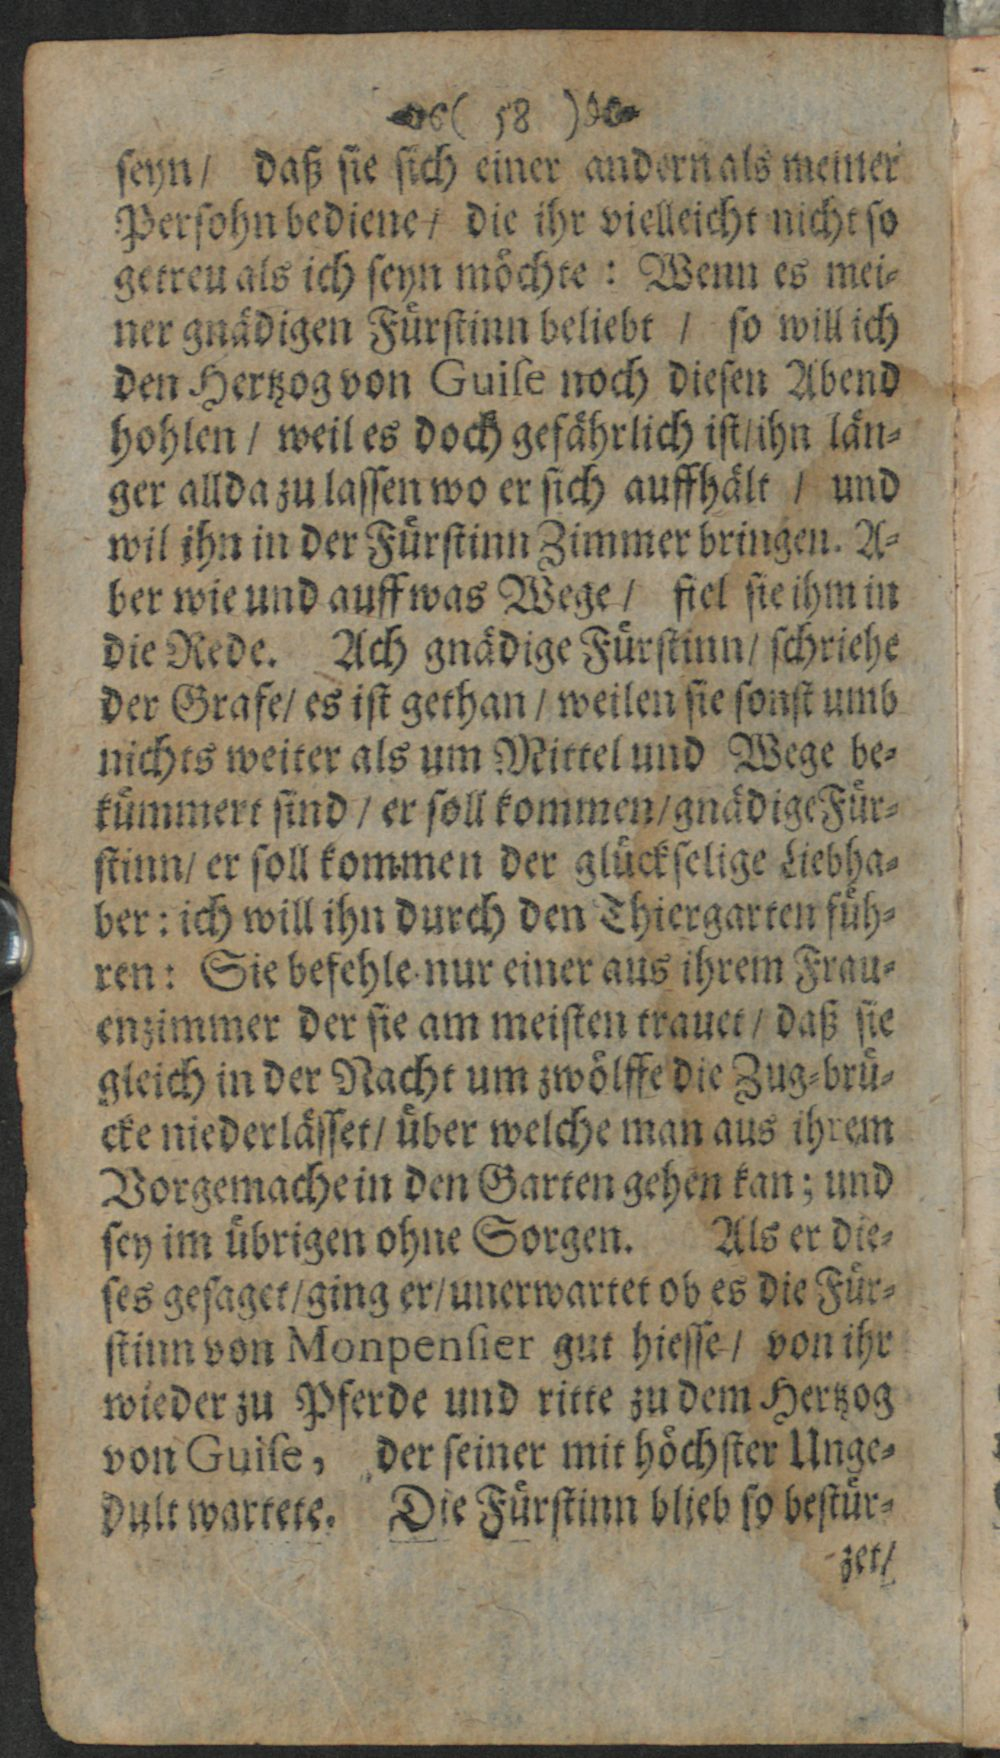 ( 58 )
seyn/ daß sie sich einer andern als meiner
Persohn bediene/ die ihr vielleicht nicht so
getreu als ich seyn möchte: Wenn es mei-
ner gnädigen Fürstinn beliebt / so will ich
den Hertzog von Guise noch diesen Abend
hohlen / weil es doch gefährlich ist/ihn län-
ger allda zu lassen wo er sich auffhält / und
wil ihn in der Fürstinn Zimmer bringen. A-
ber wie und auff was Wege / fiel sie ihm in
die Rede. Ach gnädige Fürstinn/ schriehe
der Grafe/ es ist gethan / weilen sie sonst umb
nichts weiter als um Mittel und Wege be-
kümmert sind / er soll kommen/gnädige Für-
stinn/ er soll kommen der glückselige Liebha-
ber: ich will ihn durch den Thiergarten füh-
ren: Sie befehle nur einer aus ihrem Frau-
enzimmer der sie am meisten trauet / daß sie
gleich in der Nacht um zwölffe die Zug-brü-
cke niederlässet/ über welche man aus ihrem
Vorgemache in den Garten gehen kan; und
sey im übrigen ohne Sorgen. Als er die-
ses gesaget/ging er/unerwartet ob es die Für-
stinn von Monpensier gut hiesse/ von ihr
wieder zu Pferde und ritte zu dem Hertzog
von Guise, der seiner mit höchster Unge-
dult wartete. Die Fürstinn blieb so bestür-
zet/